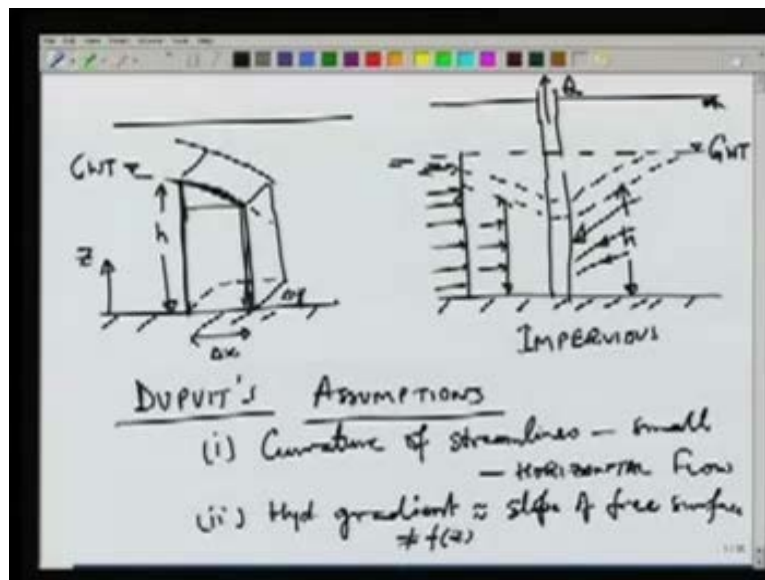 Q
GWT
GWT
h
h
Z
Δy
Δx
IMPERVIOUS
DUPUIT'S ASSUMPTIONS
(i) Curvature of streamlines — small
— HORIZONTAL Flow
(ii) Hyd gradient ≈ slope of free surface
≠ f(z)